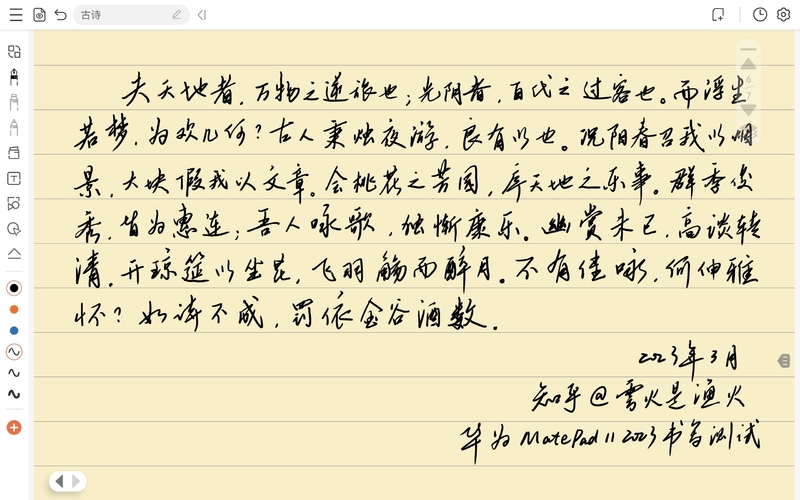 古诗
夫天地者，万物之逆旅也；光阴者，百代之过客也。而浮生
若梦，为欢几何？古人秉烛夜游，良有以也。况阳春召我以烟
景，大块假我以文章。会桃花之芳园，序天地之乐事。群季俊
秀，皆为惠连；吾人咏歌，独惭康乐。幽赏未已，高谈转
清。开琼筵以坐花，飞羽觞而醉月。不有佳咏，何伸雅
怀？如诗不成，罚依金谷酒数。
2023年3月
知乎@雪火是渔火
华为MatePad 11 2023书写测试